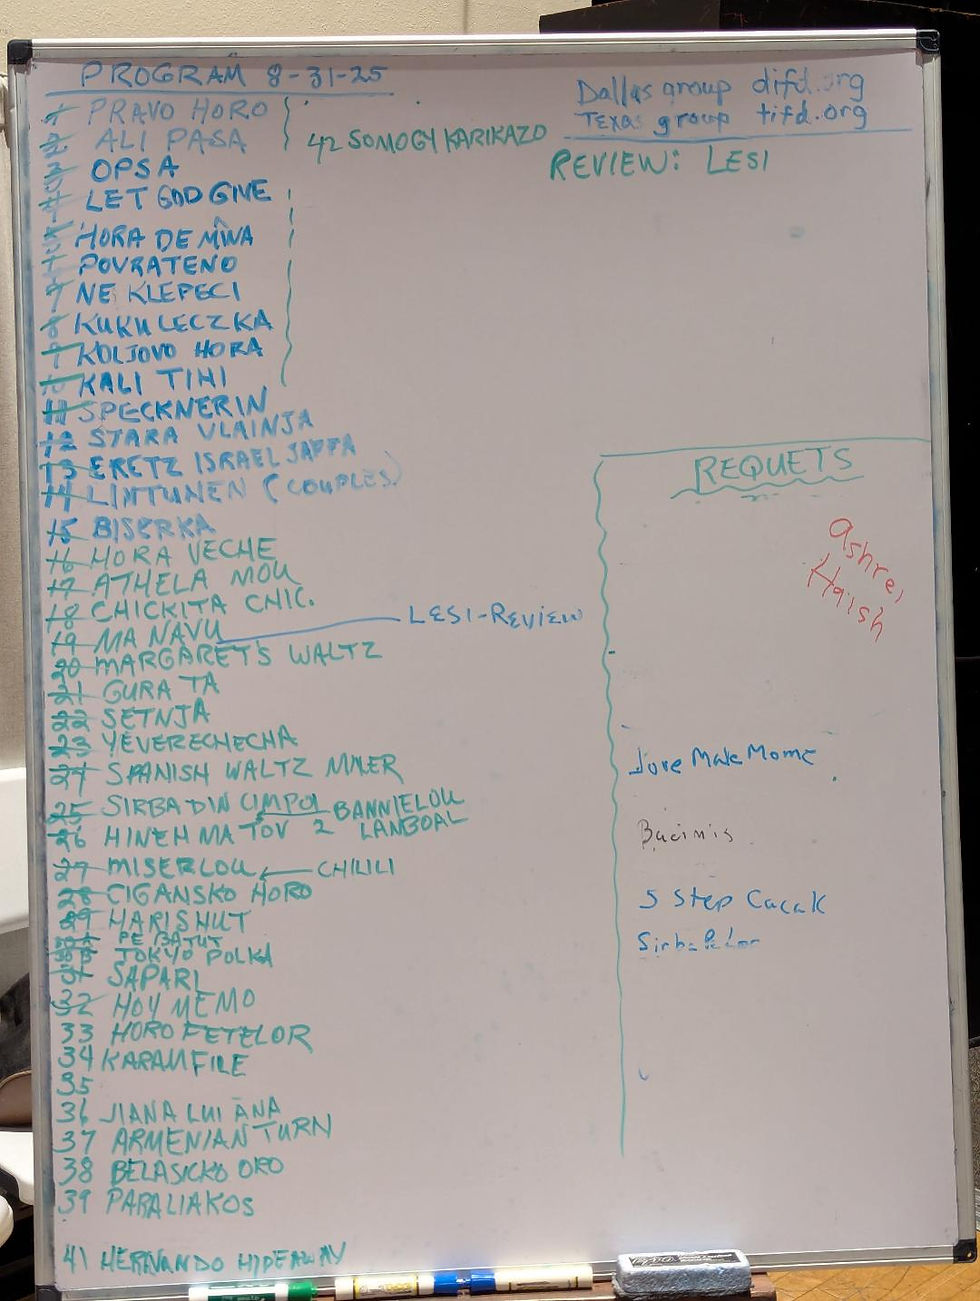 PROGRAM 8-31-25
Dallas group difd.org
Texas group tifd.org
1 PRAVO HORO
2 ALI PASA
42 SOMOGY KARIKAZO
REVIEW: LESI
3 OPSA
4 LET GOD GIVE
5 HORA DE MÎNA
POVRATENO
7 NE KLEPECI
8 KUKULECZKA
9 KOLJOVO HORA
10 KALI TIHI
11 SPECKNERIN
12 STARA VLAINJA
13 ERETZ ISRAEL JAFFA
14 LINTUNEN (COUPLES)
15 BISERKA
16 HORA VECHE
17 ATHELA MOU
18 CHICKITA CHIC.
19 MA NAVU LESI-REVIEW
20 MARGARET'S WALTZ
21 GURA TA
22 SETNJA
23 YEVERECHECHA
24 SPANISH WALTZ MIXER
25 SIRBA DIN CIMPOI BANNIELOU
26 HINEH MA TOV 2 LANBOAL
27 MISERLOU CHILILI
28 CIGANSKO HORO
29 HARISHUT
30A PE BATUT
30B TOKYO POLKA
31 SAPARI
32 HOY MEMO
33 HORO FETELOR
34 KARAMFILE
35
36 JIANA LUI ANA
37 ARMENIAN TURN
38 BELASICKO ORO
39 PARALIAKOS
41 HERNANDO HIDEAWAY
REQUETS
Ashrei
Haish
Jove Male Mome
Bucimis
5 Step Cacak